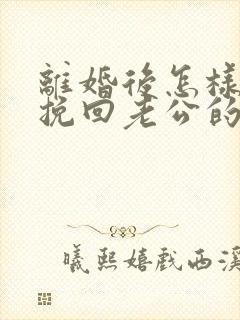 離婚後怎樣
挽回老公的
曦熙嬉戲西溪